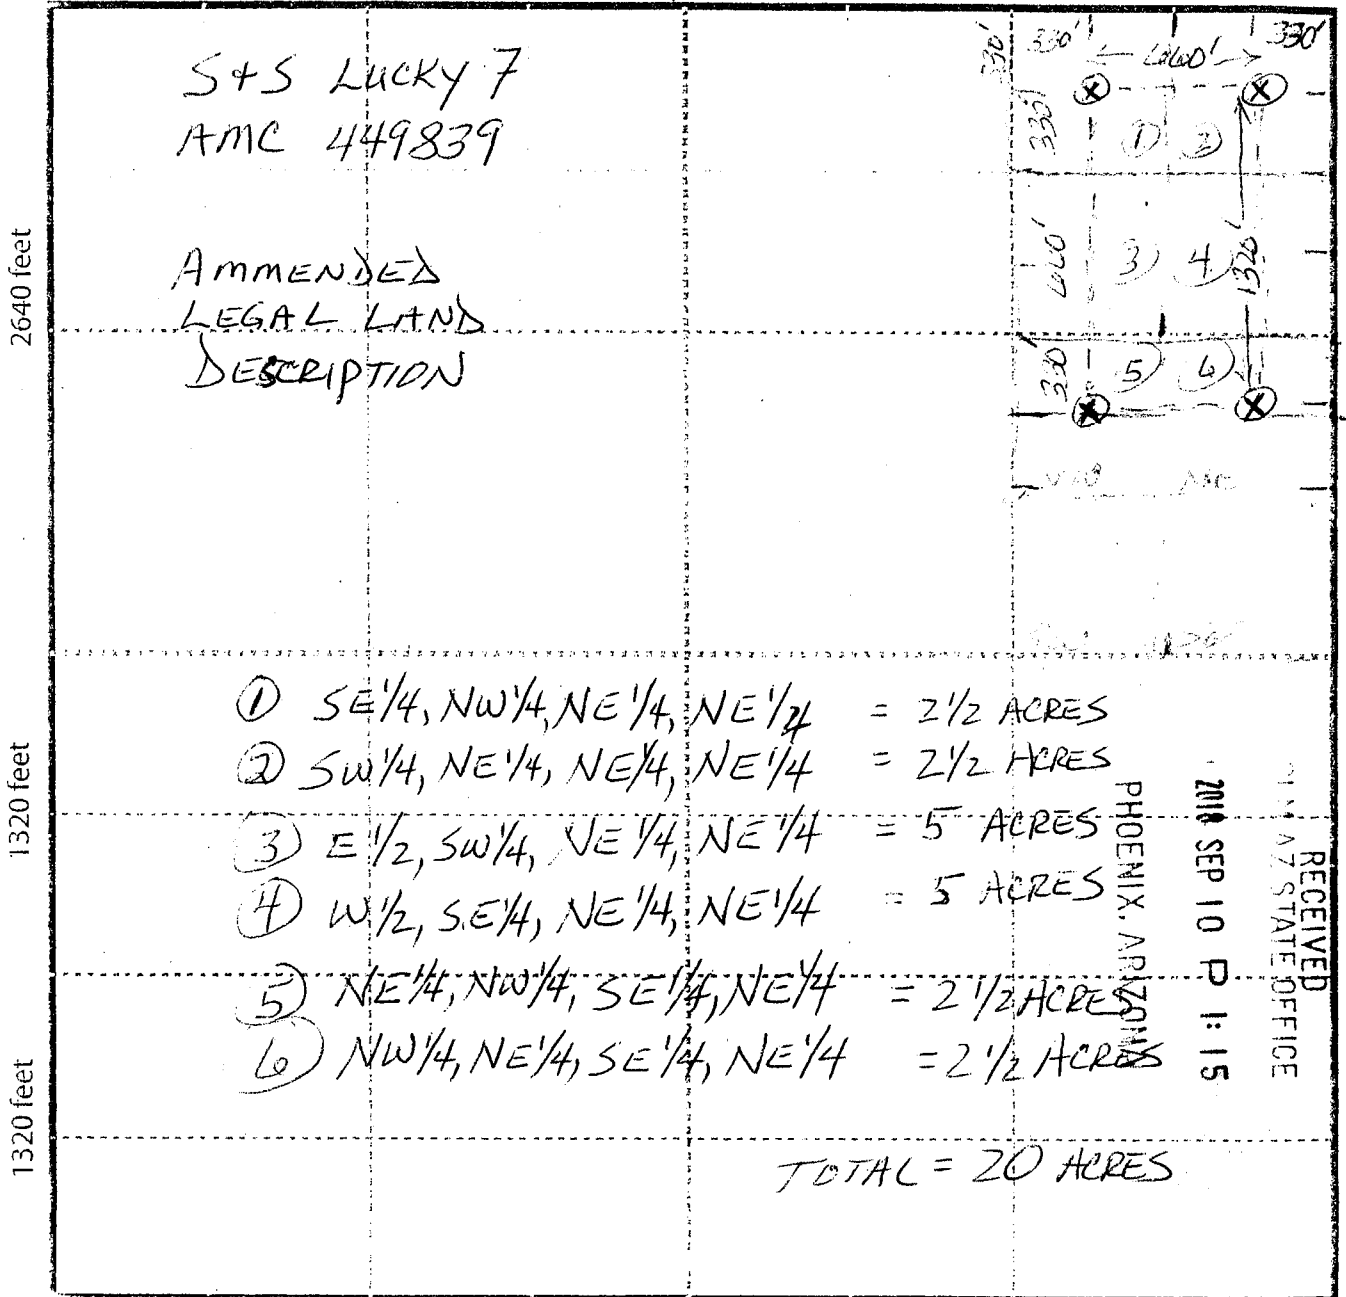 S+S LUCKY 7
AMC 449839
AMMENDED
LEGAL LAND
DESCRIPTION
330'
330'
660'
330'
330'
1
2
660'
3
4
1320'
330'
5
6
NW NE
2640 feet
1320 feet
1320 feet
① SE 1/4, NW 1/4, NE 1/4, NE 1/4 = 2 1/2 ACRES
② SW 1/4, NE 1/4, NE 1/4, NE 1/4 = 2 1/2 ACRES
③ E 1/2, SW 1/4, NE 1/4, NE 1/4 = 5 ACRES
④ W 1/2, S.E 1/4, NE 1/4, NE 1/4 = 5 ACRES
⑤ NE 1/4, NW 1/4, SE 1/4, NE 1/4 = 2 1/2 ACRES
⑥ NW 1/4, NE 1/4, SE 1/4, NE 1/4 = 2 1/2 ACRES
TOTAL = 20 ACRES
RECEIVED
AZ STATE OFFICE
2018 SEP 10 P 1: 15
PHOENIX, ARIZONA